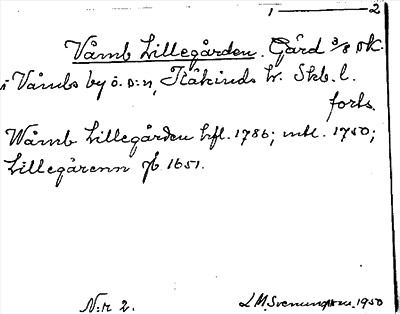 1 — 2
Våmb Lillegården. Gård 3/8 DK.
i Våmbs by ö. D:n, Kåkinds hr. Skb. l.
forts.
Wåmb Lillegården hfl. 1786; mtl. 1750;
Lillegårenn jb 1651.
N:r 2. L M. Svenungsson. 1950